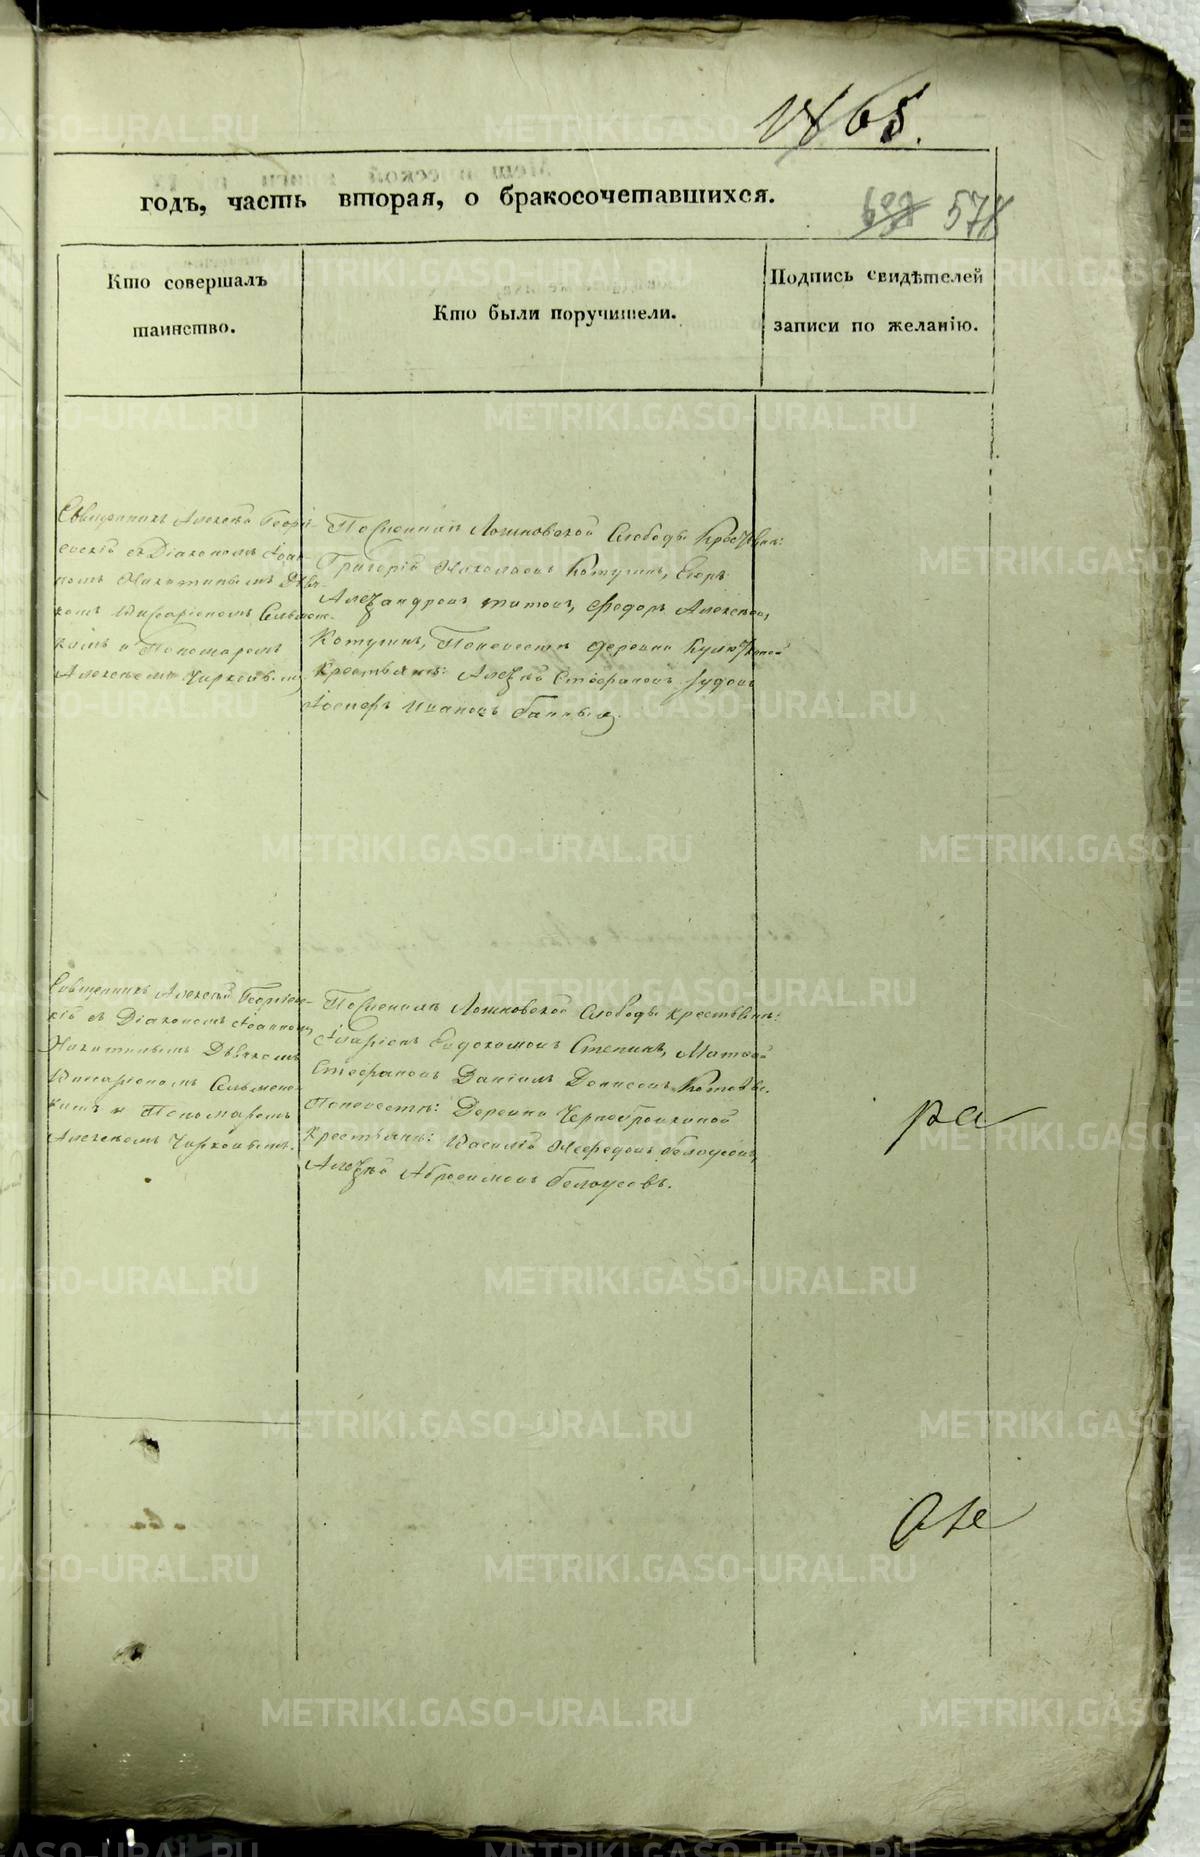 1865.
годъ, часть вторая, о бракосочетавшихся.
638 578
Кто совершалъ
таинство.
Кто были поручители.
Подпись свидѣтелей
записи по желанію.
Священникъ Алексѣй Георгі-
евскій съ Діакономъ Іоан-
номъ Никитинымъ Дья-
комъ Виссаріономъ Сельменс-
кимъ и Пономаремъ
Алексѣемъ Чирковымъ
По женихѣ Логиновской Слободы Крестьяне:
Григорій Николаевъ Котугинъ, Егоръ
Александровъ Титовъ, Федоръ Алексѣевъ
Котугинъ, По невестѣ деревни
Крестьяне: Алексѣй Стефановъ
Іосифъ Ивановъ
Священникъ Алексѣй Георгіев-
скій съ Діакономъ Іоанномъ
Никитинымъ Дьякомъ
Виссаріономъ Сельменс-
кимъ и Пономаремъ
Алексѣемъ Чирковымъ.
По женихѣ Логиновской Слободы крестьяне:
Иларіонъ Евдокимовъ Степинъ, Матвѣй
Стефановъ Даніилъ Денисовъ
По невестѣ: Деревни Чернобровкиной
Крестьяне: Василій Нефедовъ Белоусовъ,
Алексѣй Абросимовъ Белоусовъ.
ра
METRIKI.GASO-URAL.RU